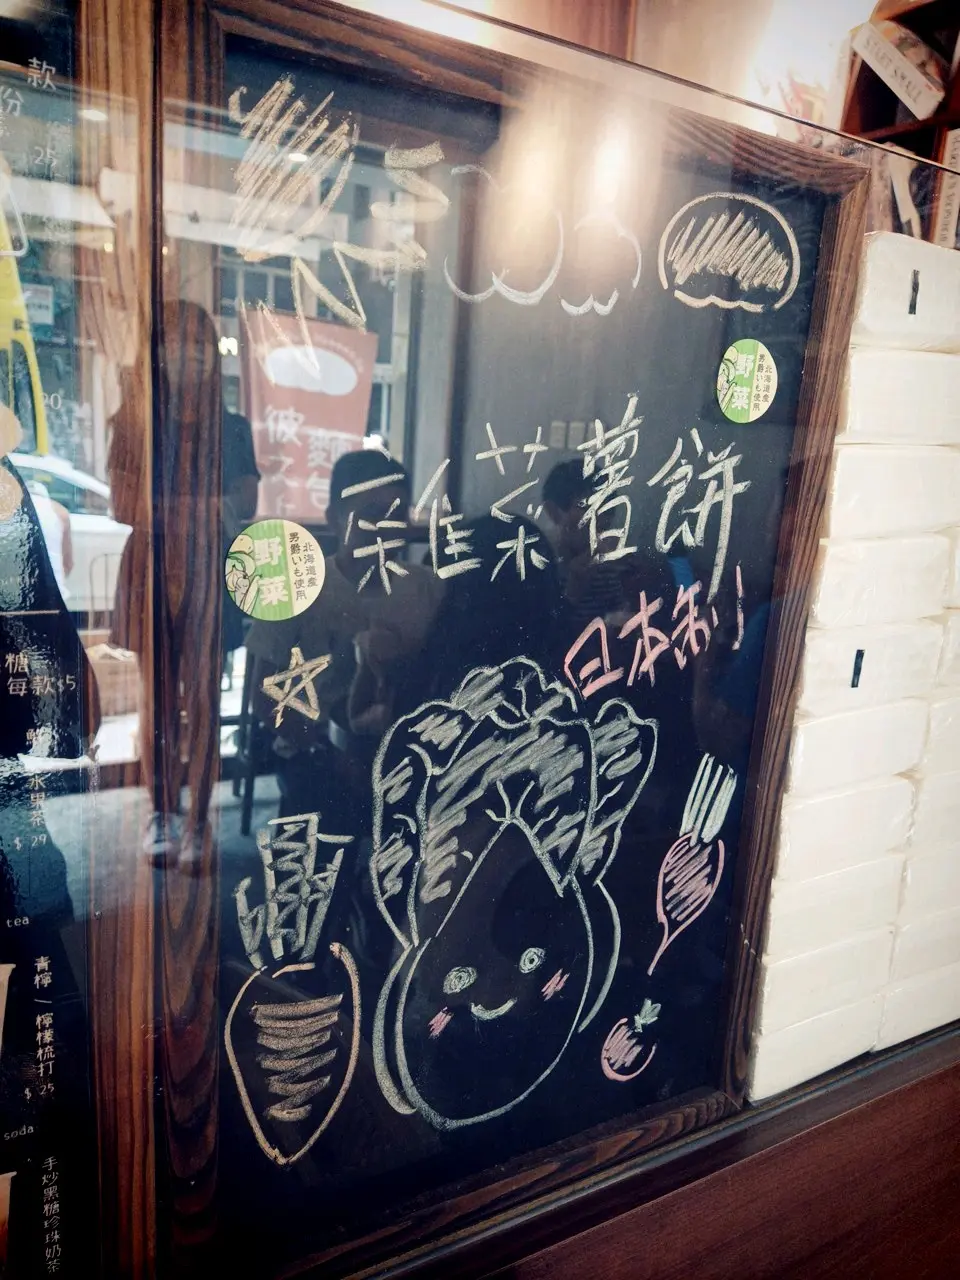 款
份
25
彼
麵
之
包
北海道産
男爵いも使用
野菜
雜菜薯餅
北海道産
男爵いも使用
野菜
日本制
糖
每款$5
水果茶
$ 29
tea
青檸 / 檸檬梳打
$ 25
soda
手炒黑糖珍珠奶茶